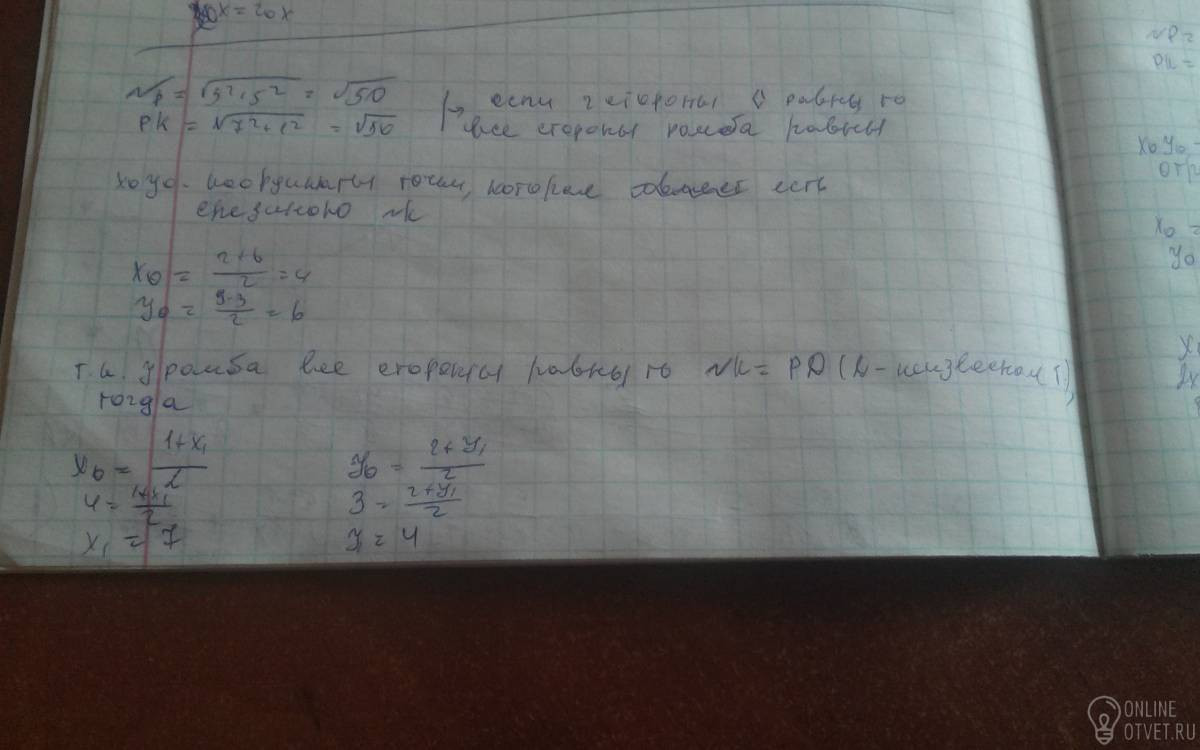 x = 20x
NP = √5²+5² = √50
PK = √7²+1² = √50
если 2 стороны ◊ равны то
все стороны ромба равны
x₀y₀ - координаты точки, которая есть
срезиною NK
x₀ = (2+6)/2 = 4
y₀ = (9-3)/2 = 6
т.к. у ромба все стороны равны, то NK = PD (D - неизвесном т),
тогда
x₀ = (1+x₁)/2
4 = (1+x₁)/2
x₁ = 7
y₀ = (2+y₁)/2
3 = (2+y₁)/2
y = 4
NP =
PK =
x₀y₀ -
отр
x₀ =
y₀
ONLINE
OTVET.RU